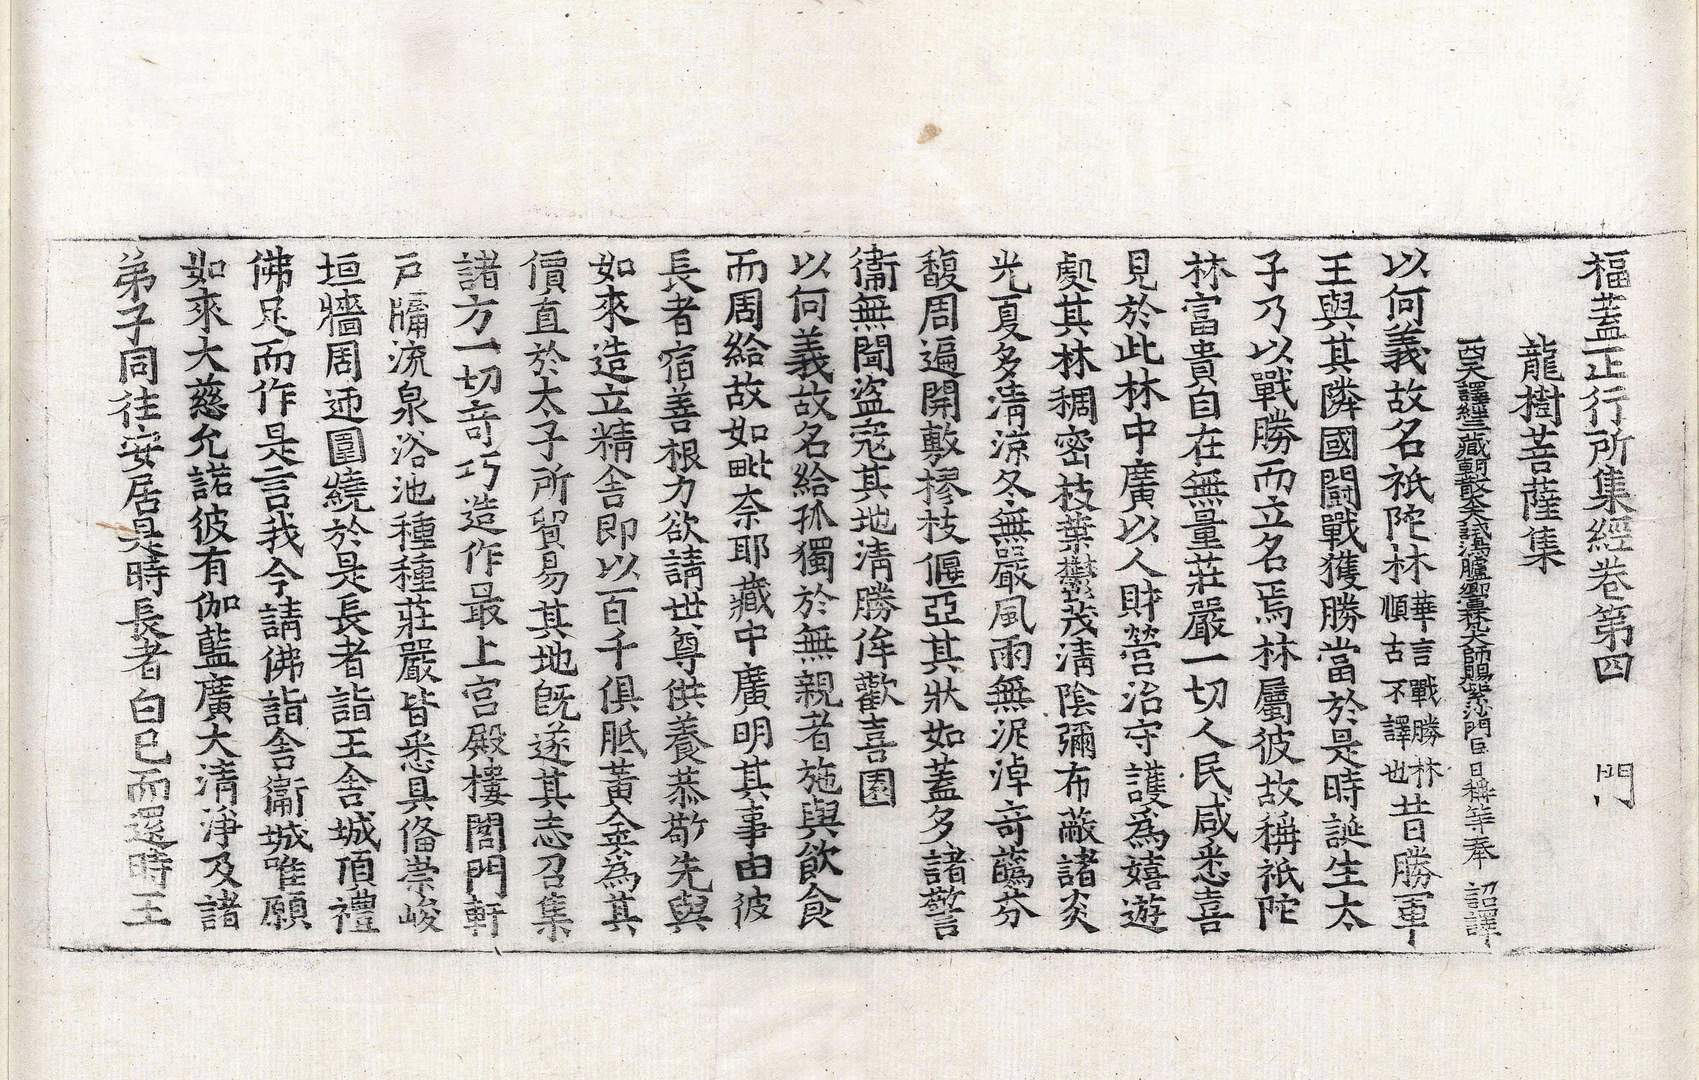 福蓋正行所集經卷第四　門
龍樹菩薩集
西天譯經三藏朝散大夫試鴻臚卿宣梵大師賜紫沙門臣日稱等奉　詔譯
以何義故名祇陀林華言戰勝林順古不譯也昔日勝軍
王與其隣國鬪戰獲勝當於是時誕生太
子乃以戰勝而立名焉林屬彼故稱祇陀
林富貴自在無量莊嚴一切人民咸悉喜
見於此林中廣以人財營治守護爲嬉遊
處其林稠密枝葉欝茂淸陰彌布蔽諸炎
光夏多淸涼冬無嚴風雨無泥淖奇蘤芬
馥周遍開敷樛枝偃亞其狀如蓋多諸警
衞無聞盜寇其地淸勝侔歡喜園
以何義故名給孤獨於無親者施與飮食
而周給故如毗奈耶藏中廣明其事由彼
長者宿善根力欲請世尊供養恭敬先與
如來造立精舍即以百千俱胝黃金爲其
價直於太子所貿易其地旣遂其志召集
諸方一切奇巧造作最上宮殿樓閣門軒
戶牖流泉浴池種種莊嚴皆悉具俻崇峻
垣牆周迊圍繞於是長者詣王舍城頂禮
佛足而作是言我今請佛詣舍衞城唯願
如來大慈允諾彼有伽藍廣大淸淨及諸
弟子同往安居是時長者白已而還時王